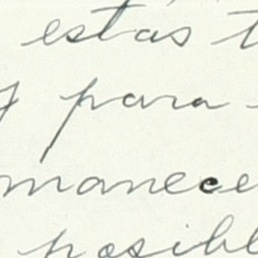 estas
y para
manece
posibl